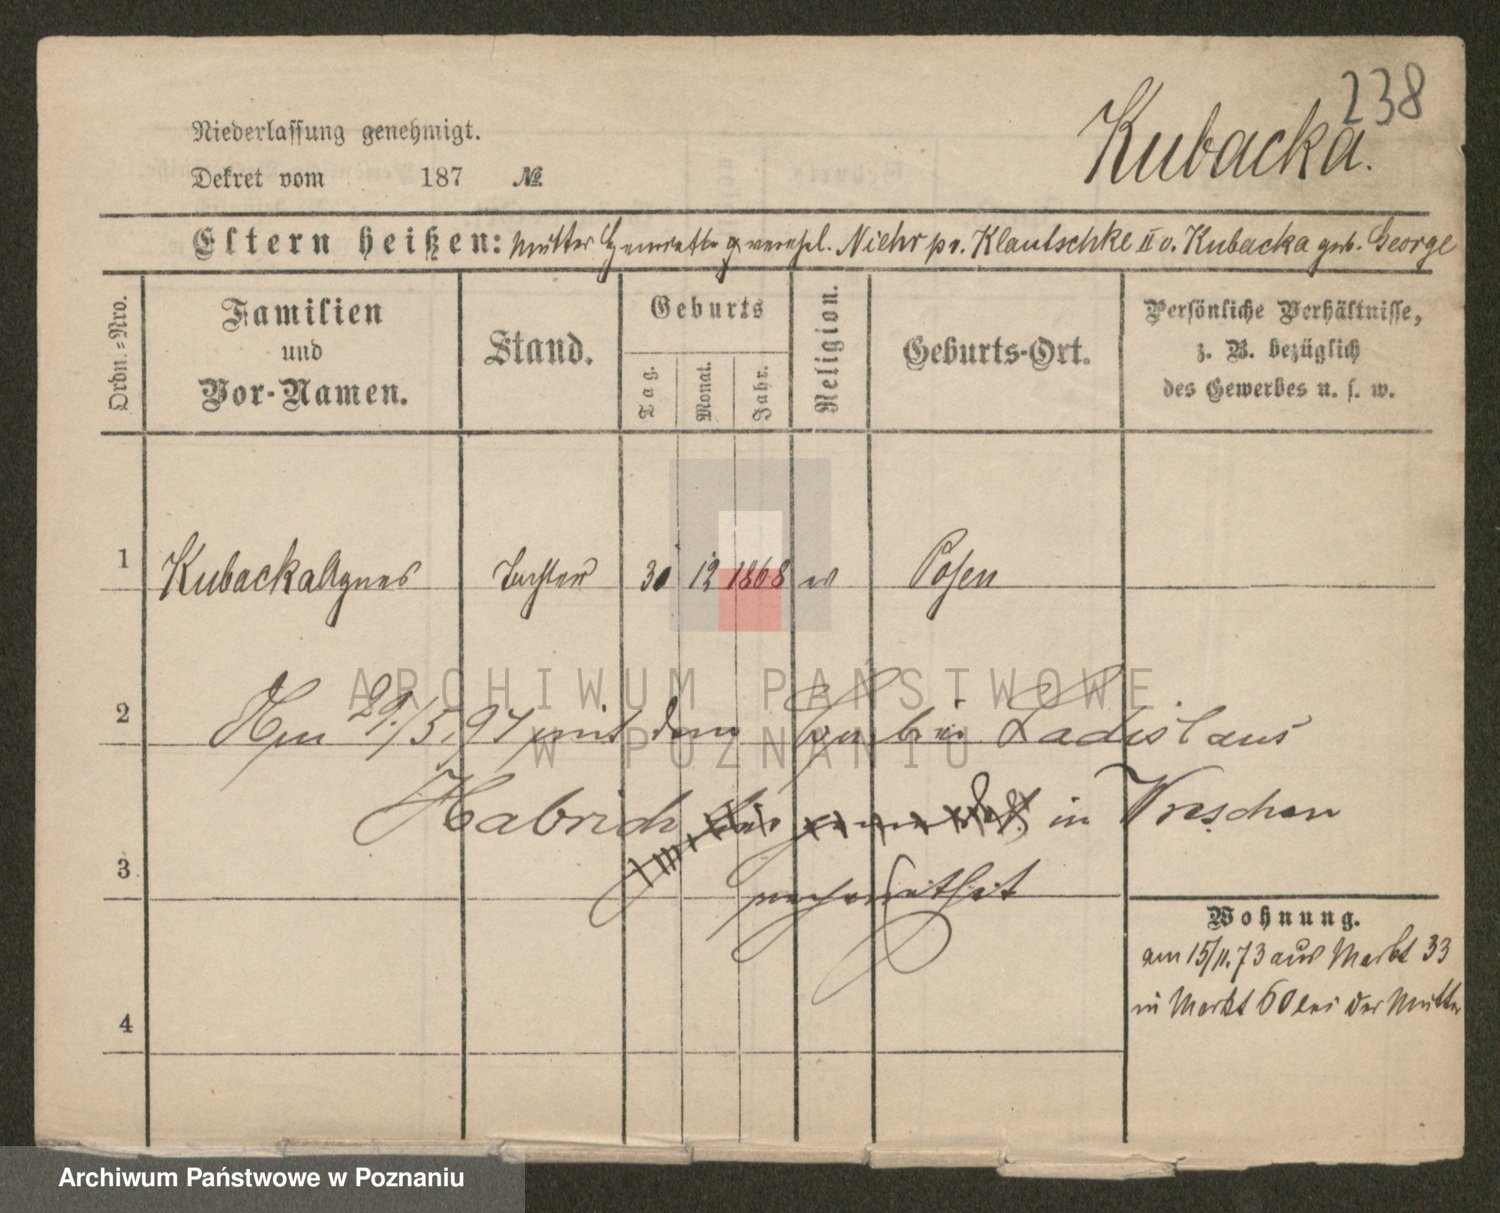 238
Kubacka.
Niederlassung genehmigt.
Dekret vom 187 №
Eltern heißen: Mutter verehel. Niehr pr. Klautschke II v. Kubacka geb. George
Ordn.-Nro.
Familien
und
Vor-Namen.
Stand.
Geburts
Tag.
Monat.
Jahr.
Religion.
Geburts-Ort.
Persönliche Verhältnisse,
z. B. bezüglich
des Gewerbes u. s. w.
1 Kubacka Agnes Tochter 30 12 1868 Posen
ARCHIWUM PAŃSTWOWE
W POZNANIU
2 Am 29./5. 97 mit dem Ladislaus
Habrich in Wreschen
3 verheirathet
Wohnung.
am 15/11. 73 aus Markt 33
in Markt 60 bei der Mutter
4
Archiwum Państwowe w Poznaniu